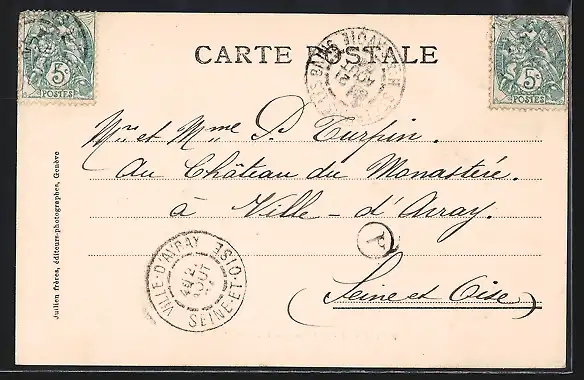 CARTE POSTALE
5c
POSTES
5c
POSTES
Mr. et Mme P. Turpin.
Au Château du Monastère.
à Ville-d'Avray.
(Seine et Oise)
VILLE-D'AVRAY
AOUT
SEINE-ET-OISE
Jullien frères, éditeurs-photographes, Genève